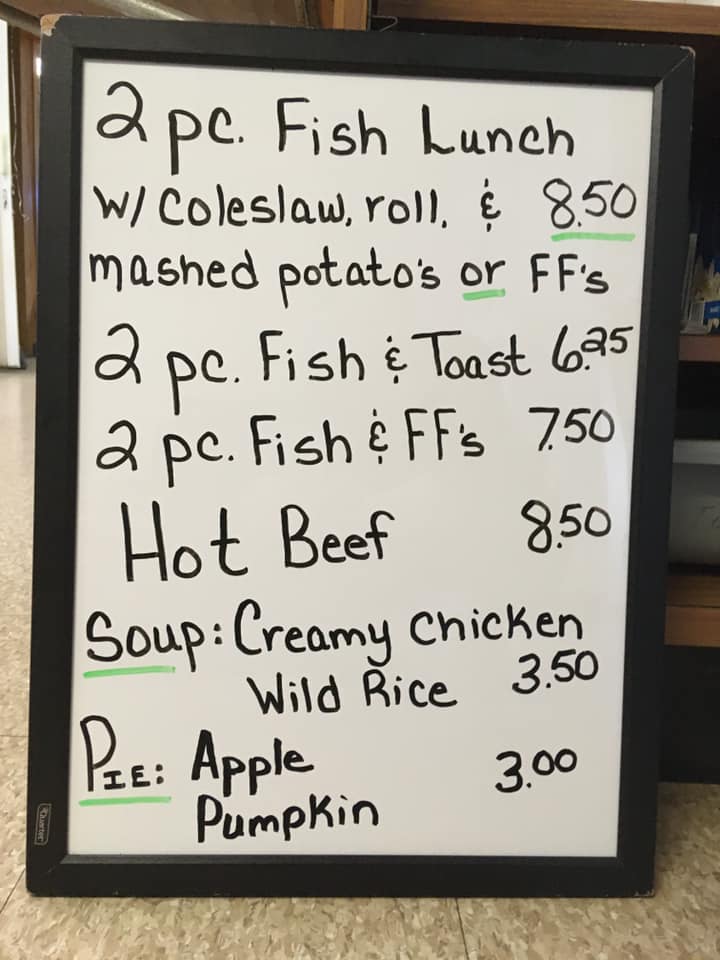 2 pc. Fish Lunch
w/ Coleslaw, roll, & 8.50
mashed potato's or FF's
2 pc. Fish & Toast 6.25
2 pc. Fish & FF's 7.50
Hot Beef 8.50
Soup: Creamy Chicken
Wild Rice 3.50
PIE: Apple 3.00
Pumpkin
Quartet